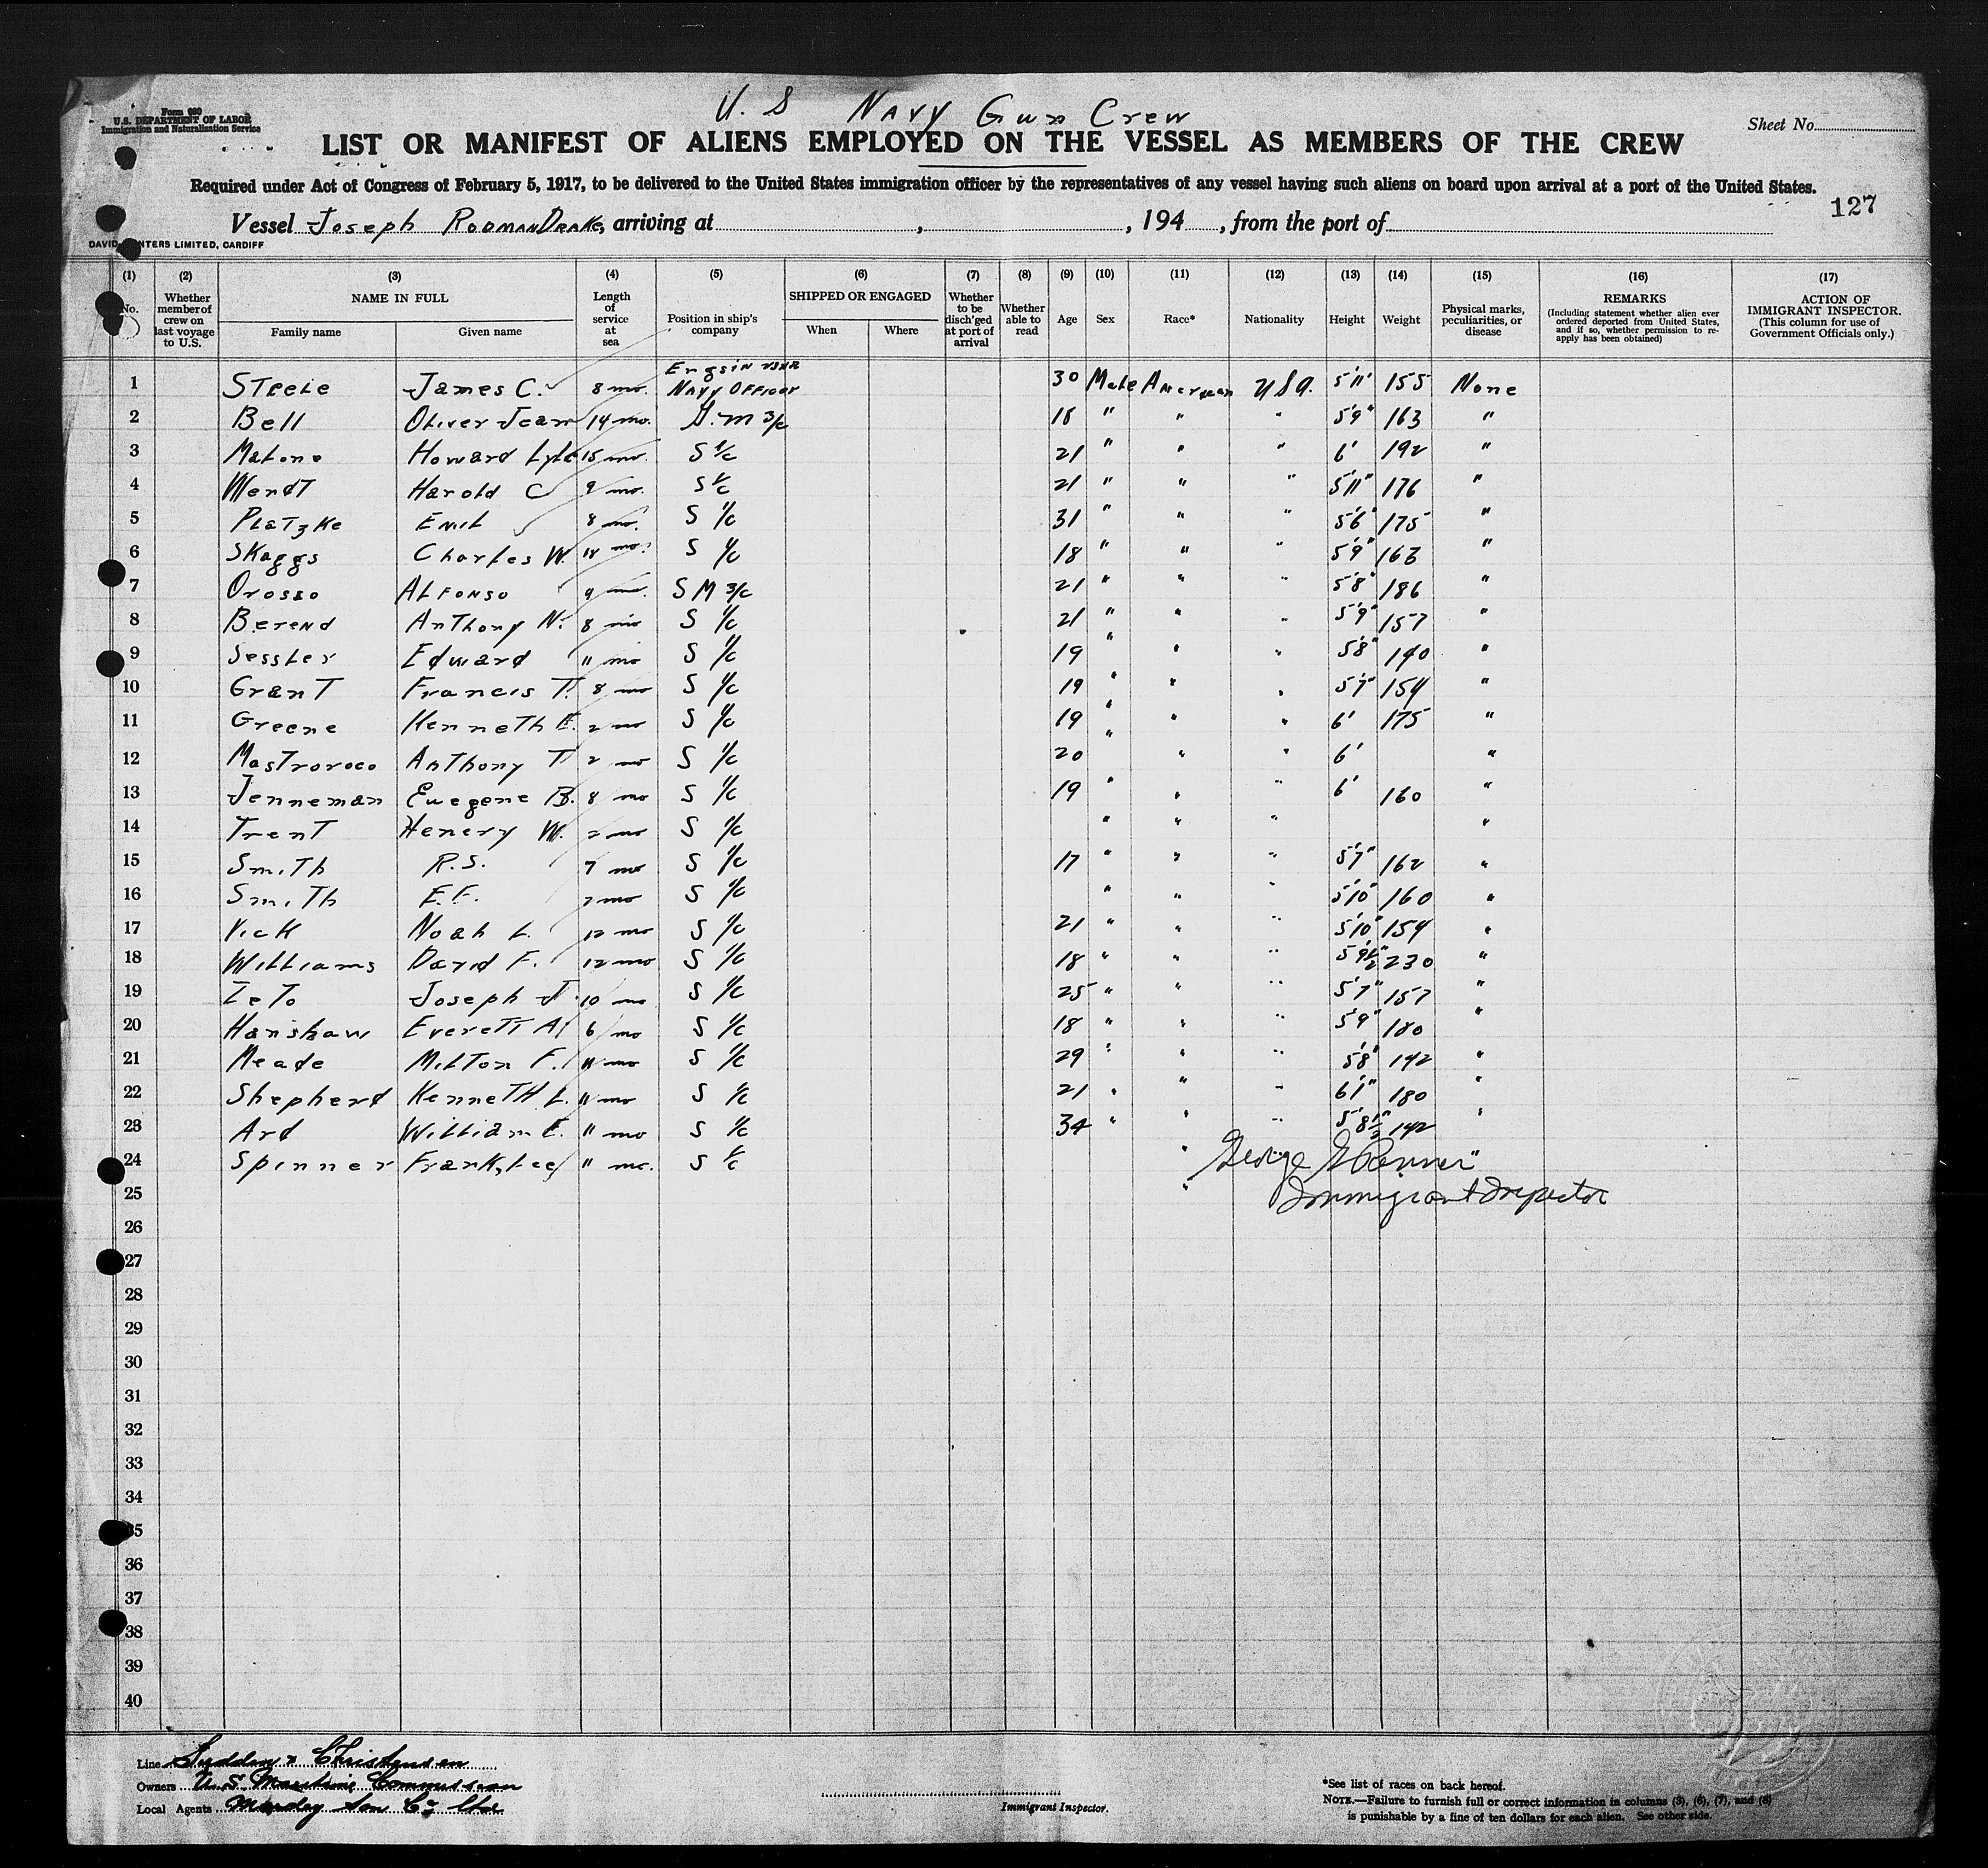 Form 680
U.S. DEPARTMENT OF LABOR
Immigration and Naturalization Service
U. S Navy Gun Crew
Sheet No.
LIST OR MANIFEST OF ALIENS EMPLOYED ON THE VESSEL AS MEMBERS OF THE CREW
Required under Act of Congress of February 5, 1917, to be delivered to the United States immigration officer by the representatives of any vessel having such aliens on board upon arrival at a port of the United States.
127
Vessel Joseph Rodman Drake, arriving at , , 194 , from the port of
LIMITED, CARDIFF
(1) (2) (3) (4) (5) (6) (7) (8) (9) (10) (11) (12) (13) (14) (15) (16) (17)
No. Whether member of crew on last voyage to U.S. NAME IN FULL Family name Given name Length of service at sea Position in ship's company SHIPPED OR ENGAGED When Where Whether to be disch'ged at port of arrival Whether able to read Age Sex Race* Nationality Height Weight Physical marks, peculiarities, or disease REMARKS (Including statement whether alien ever ordered deported from United States, and if so, whether permission to re-apply has been obtained) ACTION OF IMMIGRANT INSPECTOR. (This column for use of Government Officials only.)
1 Steele James C. 8 mo. Ensgin USNR Navy Officer 30 Male American USA. 5'11" 155 None
2 Bell Oliver Jean 14 mo. G.M 3/c 18 " " " 5'9" 163 "
3 Malone Howard Lyle 15 mo. S 1/c 21 " " " 6' 192 "
4 Wendt Harold C 9 mo. S 1/c 21 " " " 5'11" 176 "
5 Platzke Emil 8 mo. S 1/c 31 " " " 5'6" 175 "
6 Skaggs Charles W. 14 mo. S 1/c 18 " " " 5'9" 163 "
7 Orosso Alfonso 9 mo. S M 3/c 21 " " " 5'8" 186 "
8 Berend Anthony N. 8 mo S 1/c 21 " " " 5'9" 157 "
9 Sessler Edward 11 mo S 1/c 19 " " " 5'8" 140 "
10 Grant Francis T. 8 mo S 1/c 19 " " " 5'7" 154 "
11 Greene Kenneth E. 2 mo S 1/c 19 " " " 6' 175 "
12 Mastroroco Anthony T 2 mo S 1/c 20 " " " 6' "
13 Jenneman Euegene B. 8 mo S 1/c 19 " " " 6' 160 "
14 Trent Henery W. 2 mo S 1/c " " " "
15 Smith R.S. 7 mo S 1/c 17 " " " 5'7" 162 "
16 Smith E.F. 7 mo S 1/c " " " 5'10" 160 "
17 Vick Noah L. 12 mo S 1/c 21 " " " 5'10" 154 "
18 Williams David F. 12 mo S 1/c 18 " " " 5'9½" 230 "
19 Zeto Joseph J. 10 mo S 1/c 25 " " " 5'7" 157 "
20 Hanshaw Everett A. 6 mo S 1/c 18 " " " 5'9" 180 "
21 Meade Milton F. 11 mo S 1/c 29 " " " 5'8" 142 "
22 Shepherd Kenneth L. 11 mo S 1/c 21 " " " 6'1" 180 "
23 Ard William E. 11 mo S 1/c 34 " " " 5'8½" 142 "
24 Spinner Frank, Lee 11 mo. S 1/c " George "
25 " Immigrant Inspector
26
27
28
29
30
31
32
33
34
35
36
37
38
39
40
Line Sudden & Christensen
Owners U.S. Maritime Commission
Local Agents Son Co. Ltd
Immigrant Inspector.
*See list of races on back hereof.
NOTE.—Failure to furnish full or correct information in columns (3), (6), (7), and (8)
is punishable by a fine of ten dollars for each alien. See other side.